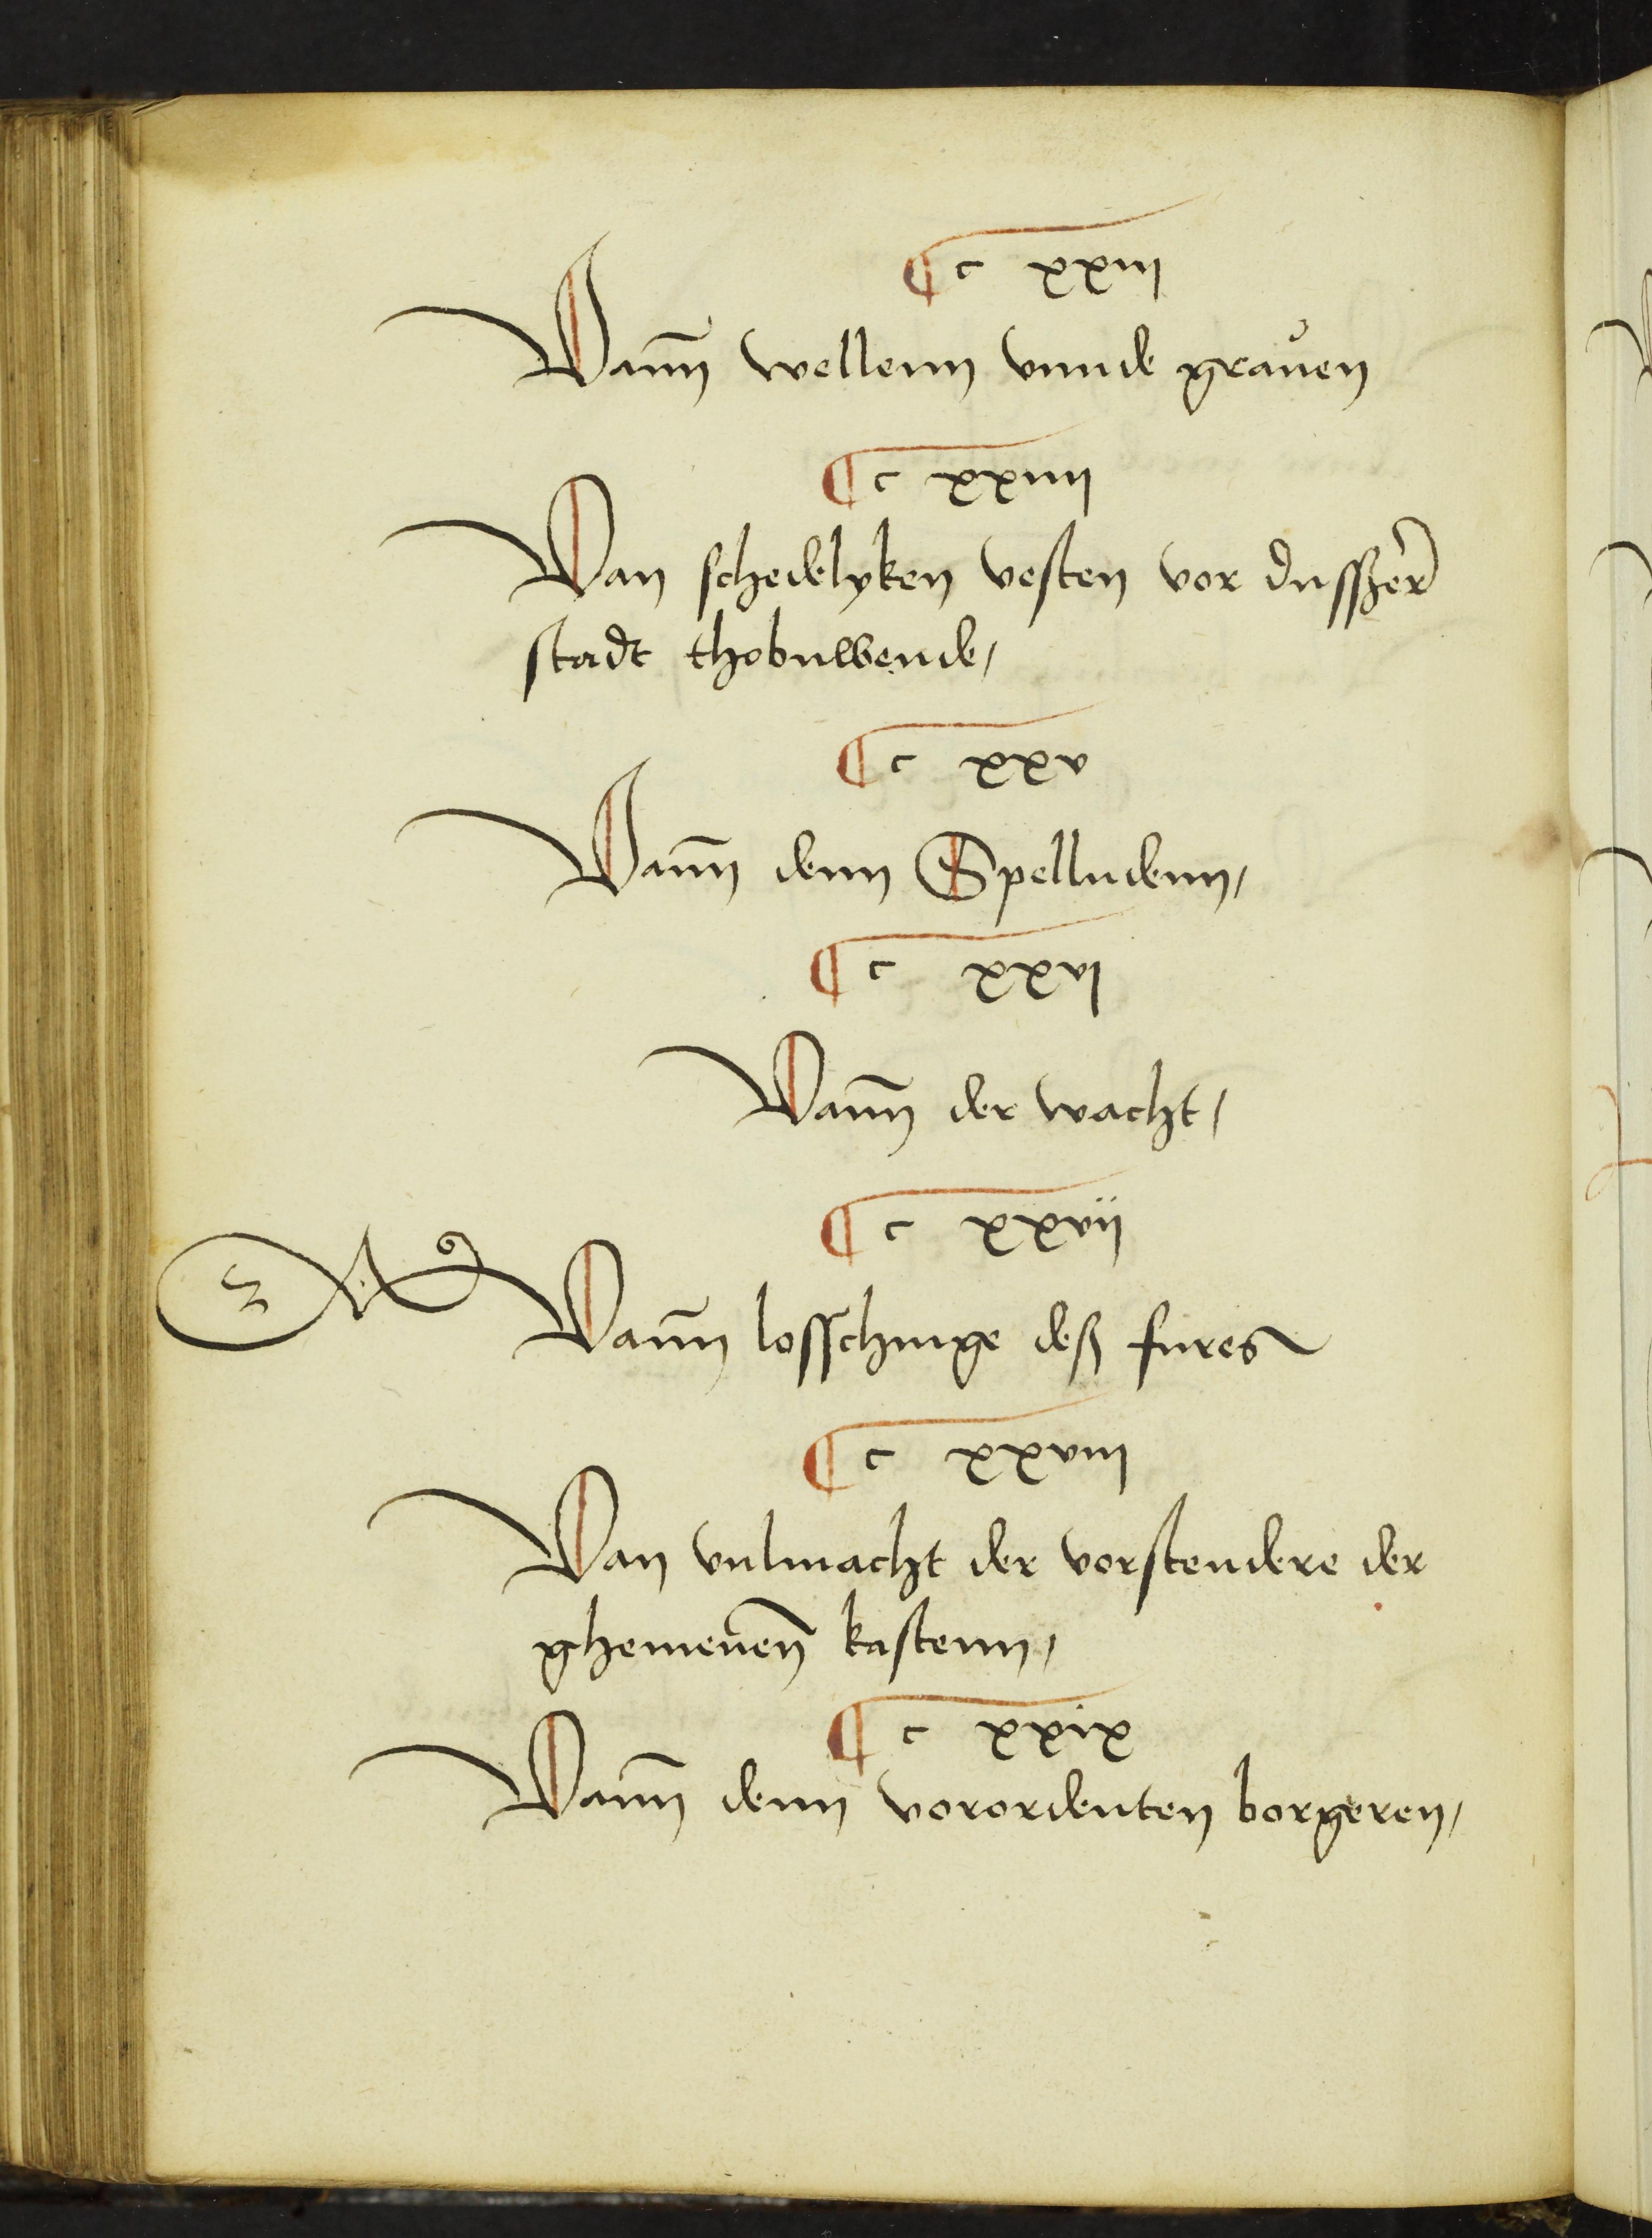 ¶ c xxiii
Vann wellenn vnnde grauen
¶ c xxiiii
Van schedelyken vesten vor dusszer
stadt thobuwende,
¶ c xxv
Vann denn Spelludenn,
¶ c xxvi
Vann der wacht,
¶ c xxvii
Vann losschinge deß fures
¶ c xxviii
Van vulmacht der vorstendere der
ghemenen kastenn,
¶ c xxix
Vann denn vorordenten borgeren,